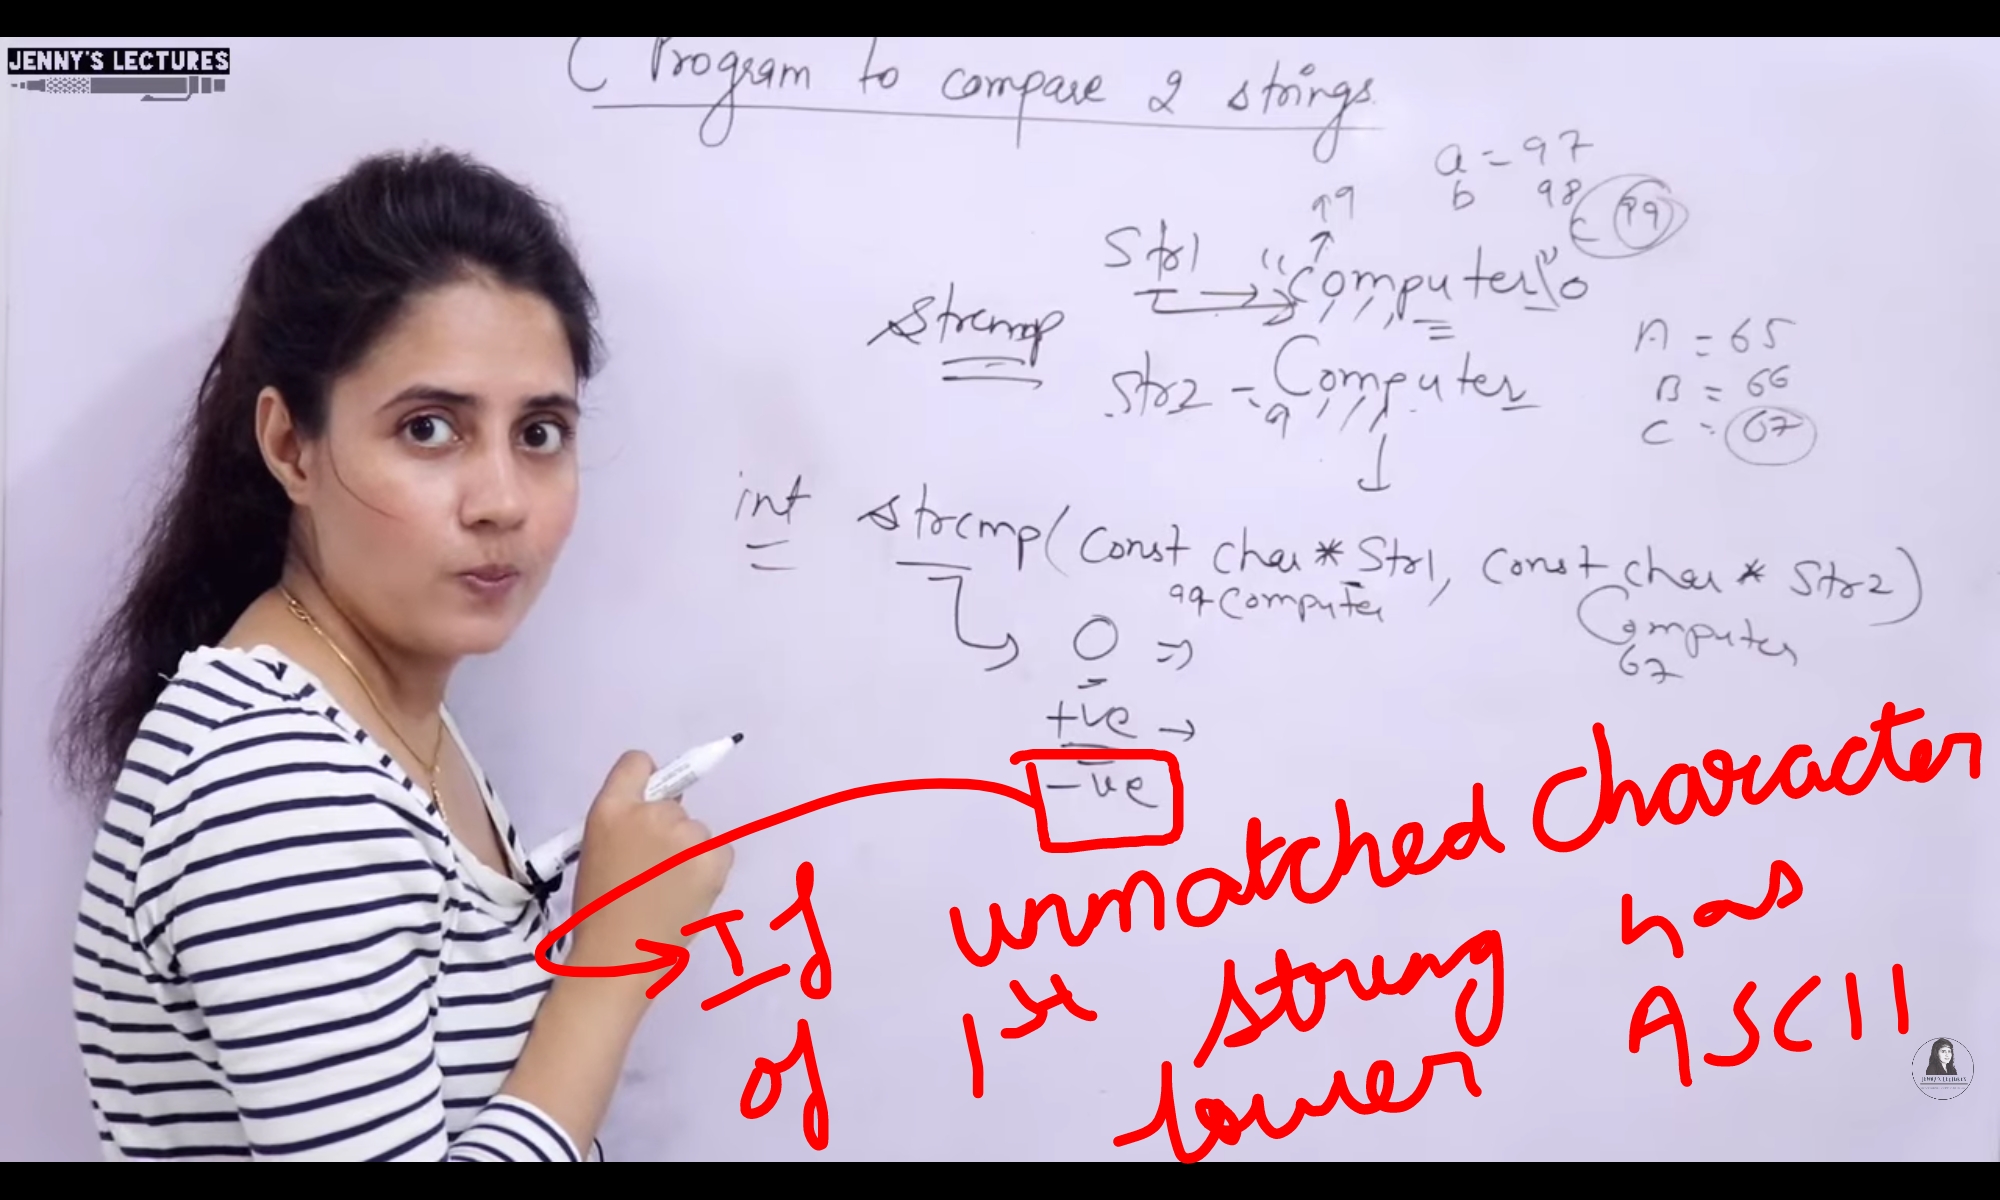 JENNY'S LECTURES
C Program to compare 2 strings.
a = 97
b 98
c 99
99
Str1 "computer"\0
strcmp
Str2 - Computer
A = 65
B = 66
C = 67
int strcmp(const char * Str1, const char * Str2)
99 computer
Computer
67
0 =>
+ve →
-ve
If unmatched character
of 1st string has
lower ASCII